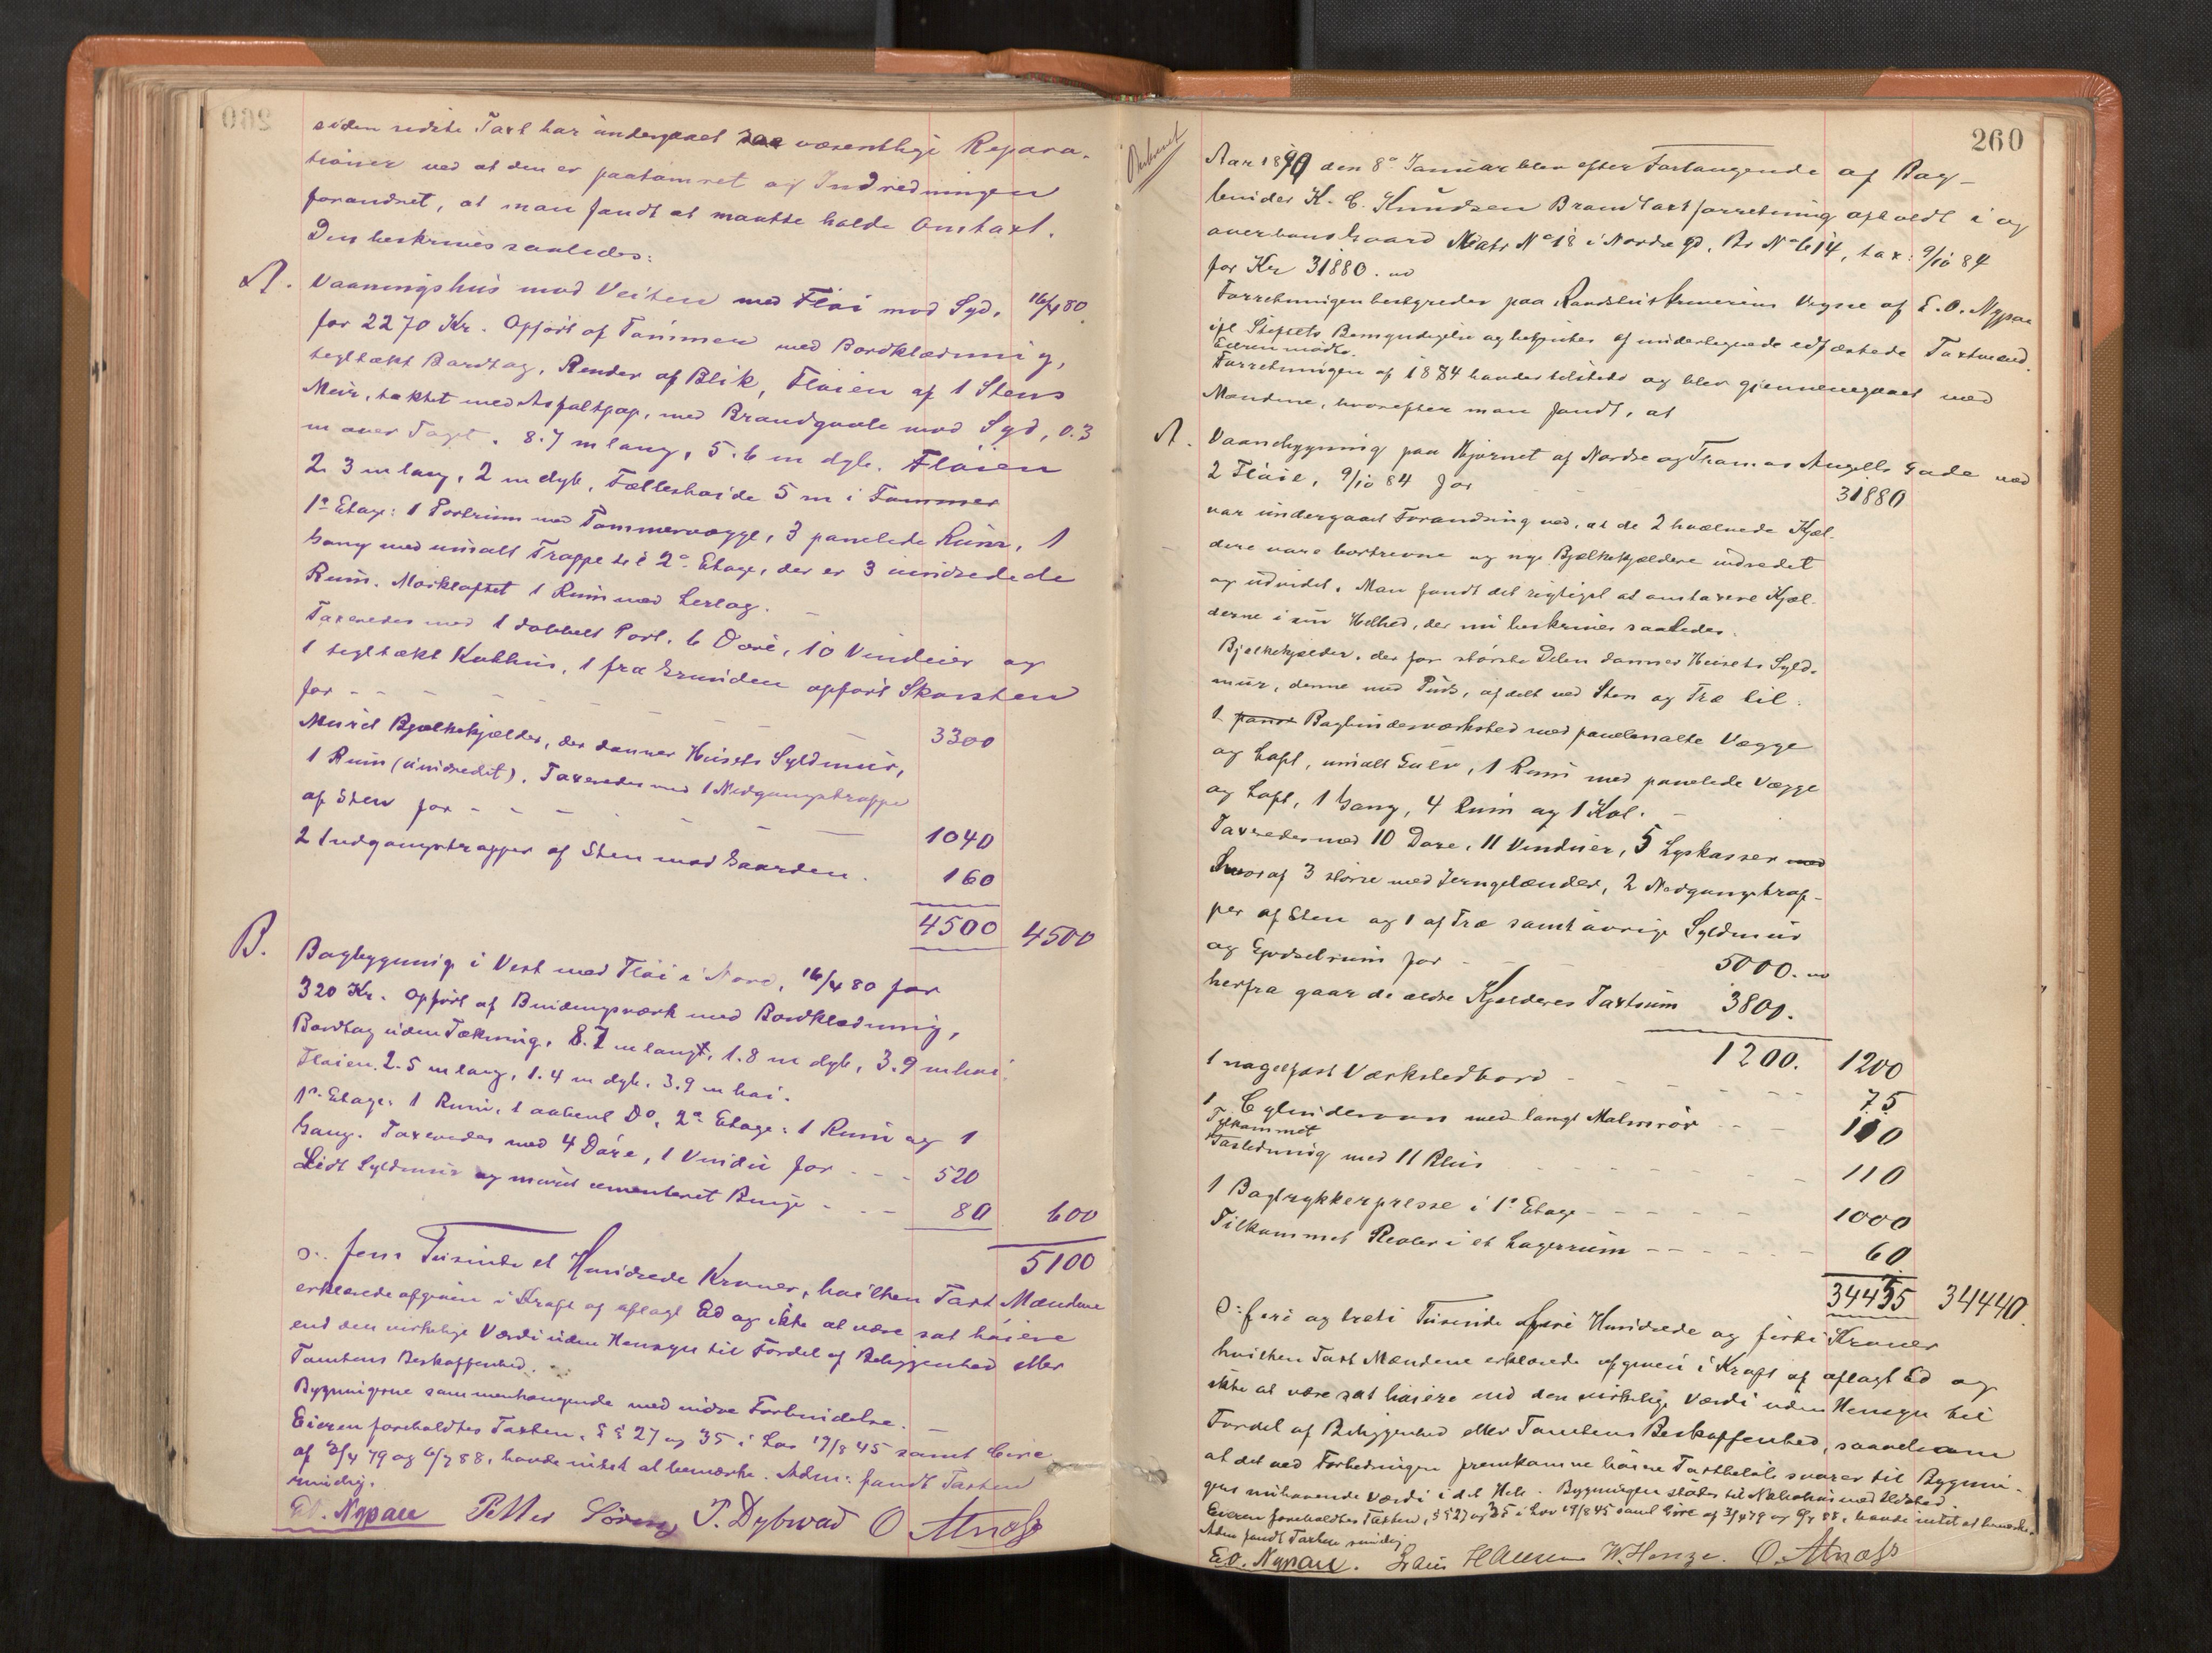 siden sidste Taxt har undergaaet saa væsentlige Repara-
tioner ved at den er paatømret og Indredningen
forandret, at man fandt at maatte holde Omtaxt.
Den beskrives saaledes:
A. Vaaningshus mod Veiten med Fløi mod Syd, 16/4 80.
for 2270 Kr. Opført af Tømmer med Bordklædning,
tegltækt Bordtag, Render af Blik, Fløien af 1 Stens
Mur, tækket med Asfaltpap, med Brandgavle mod Syd, 0.3
m over Taget. 8.7 m lang, 5.6 m dyb. Fløien
2.3 m lang, 2 m dyb, Fælleshøide 5 m i Tømmer
1ste Etage: 1 Portrum med Tømmervægge, 3 panelede Rum, 1
Gang med umalt Trappe til 2den Etage, der er 3 uindredede
Rum. Mørkloftet 1 Rum med Lerlag.
Taxeredes med 1 dobbelt Port, 6 Døre, 10 Vinduer og
1 tegltækt Kvkhus, 1 fra Grunden opført Skorsten
for - - - - - - - 3300
Muret Bjælkekjælder, der danner Husets Syldmur,
1 Rum (uindredet). Taxeredes med 1 Nedgangstrappe
af Sten for - - - - - 1040
2 Indgangstrapper af Sten mod Gaarden. 160
4500 4500
B. Bagbygning i Vest med Fløi i Nord, 16/4 80 for
320 Kr. Opført af Bindingsværk med Bordklædning,
Bordtag uden Tækning, 8.2 m langt, 1.8 m dyb, 3.9 m høi.
Fløien 2.5 m lang, 1.4 m dyb, 3.9 m høi.
1ste Etage: 1 Rum, 1 aabent Do, 2den Etage: 1 Rum og 1
Gang. Taxeredes med 4 Døre, 1 Vindu for - - - 520
Lidt Syldmur og muret cementeret Binge - - - 80 600
5100
ɔ: fem Tusinde et Hundrede Kroner, hvilken Taxt Mændene
erklærede afgiven i Kraft af aflagt Ed og ikke at være sat høiere
end den virkelige Værdi uden Hensyn til Fordel af Beliggenhed eller
Tomtens Beskaffenhed.
Bygningerne sammenhængende med indre Forbindelse.
Eieren foreholdtes Taxten, §§ 27 og 35 i Lov 19/8 45 samt Circ
af 3/4 79 og 6/7 88, havde intet at bemærke. Adm: fandt Taxten
rimelig.
E.O. Nypan Petter P. Dybwad O Atnæss
260
Aar 1890 den 8de Januar blev efter Forlangende af Bog-
binder K. C. Knudsen Brandtaxtforretning afholdt i og
over hans Gaard Matr No 18 i Nordre Gd. Br No 614, tax: 9/10 84
for Kr 31880.
Forretningen bestyredes paa Raadstuskriverens Vegne af E.O. Nypan
ifl. Stiftets Bemyndigelse og betjentes af underlegnede edfæstede Taxtmænd.
Eieren mødte.
Forretningen af 1884 havdes tilstede og blev gjennemgaaet med
Mændene, hvorefter man fandt, at
A. Vaanebygning paa Hjørnet af Nordre og Thomas Angells Gade med
2 Fløie, 9/10 84 for - - - 31880
var undergaaet Forandring ved, at de 2 hvælvede Kjæl-
dere vare bortrevne og nye Bjælkekjældere indredet
og udvidet. Man fandt det rigtigst at omtaxere Kjæl-
derne i sin Helhed, der nu beskrives saaledes:
Bjælkekjælder, der for største Delen danner Husets Syld-
mur, denne med Puds, afdelt ved Sten og Træ til:
1 Bogbinderværksted med panelmalte Vægge
og Loft, umalt Gulv, 1 Rum med panelede Vægge
og Loft, 1 Gang, 4 Rum og 1 Kot.
Taxeredes med 10 Døre, 11 Vinduer, 5 Lyskasser med
hvoraf 3 større med Jerngelænder, 2 Nedgangstrap-
per af Sten og 1 af Træ samt øvrige Syldmur
og Gjødselrum for - - - 5000.
herfra gaar de ældre Kjælderes Taxtsum 3800.
1200. 1200
1 nagelfast Værkstedbord - - - - - 75
1 Cylinderovn med langt Malmrør - - - 110
Tilkommet
Gasledning med 11 Blus - - - - - 110
1 Bogtrykkerpresse i 1ste Etage - - - - - 1000
Tilkommet Reoler i et Lagerrum - - - - - 60
34435 34440.
ɔ: fire og treti Tusinde fire Hundrede og firti Kroner
hvilken Taxt Mændene erklærede afgiven i Kraft af aflagt Ed og
ikke at være sat høiere end den virkelige Værdi uden Hensyn til
Fordel af Beliggenhed eller Tomtens Beskaffenhed, saavelsom
at det ved Forbedringen fremkomne høiere Taxtbeløb svarer til Bygnin-
gens nuhavende Værdi i det Hele. Bygningen støder til Nabohus med Ildsted.
Eieren foreholdtes Taxten, §§ 27 og 35 i Lov 19/8 45 samt Circ af 3/4 79 og 6/7 88, havde intet at bemærke.
Adm fandt Taxten rimelig
E.O. Nypan. Hansen W. Henze. O. Atnæss